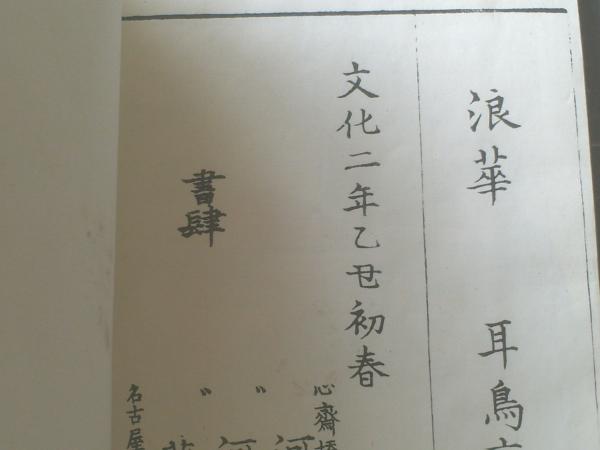 浪華 耳鳥
文化二年乙丑初春
書肆
心齋橋
〃 河
〃 河
名古屋